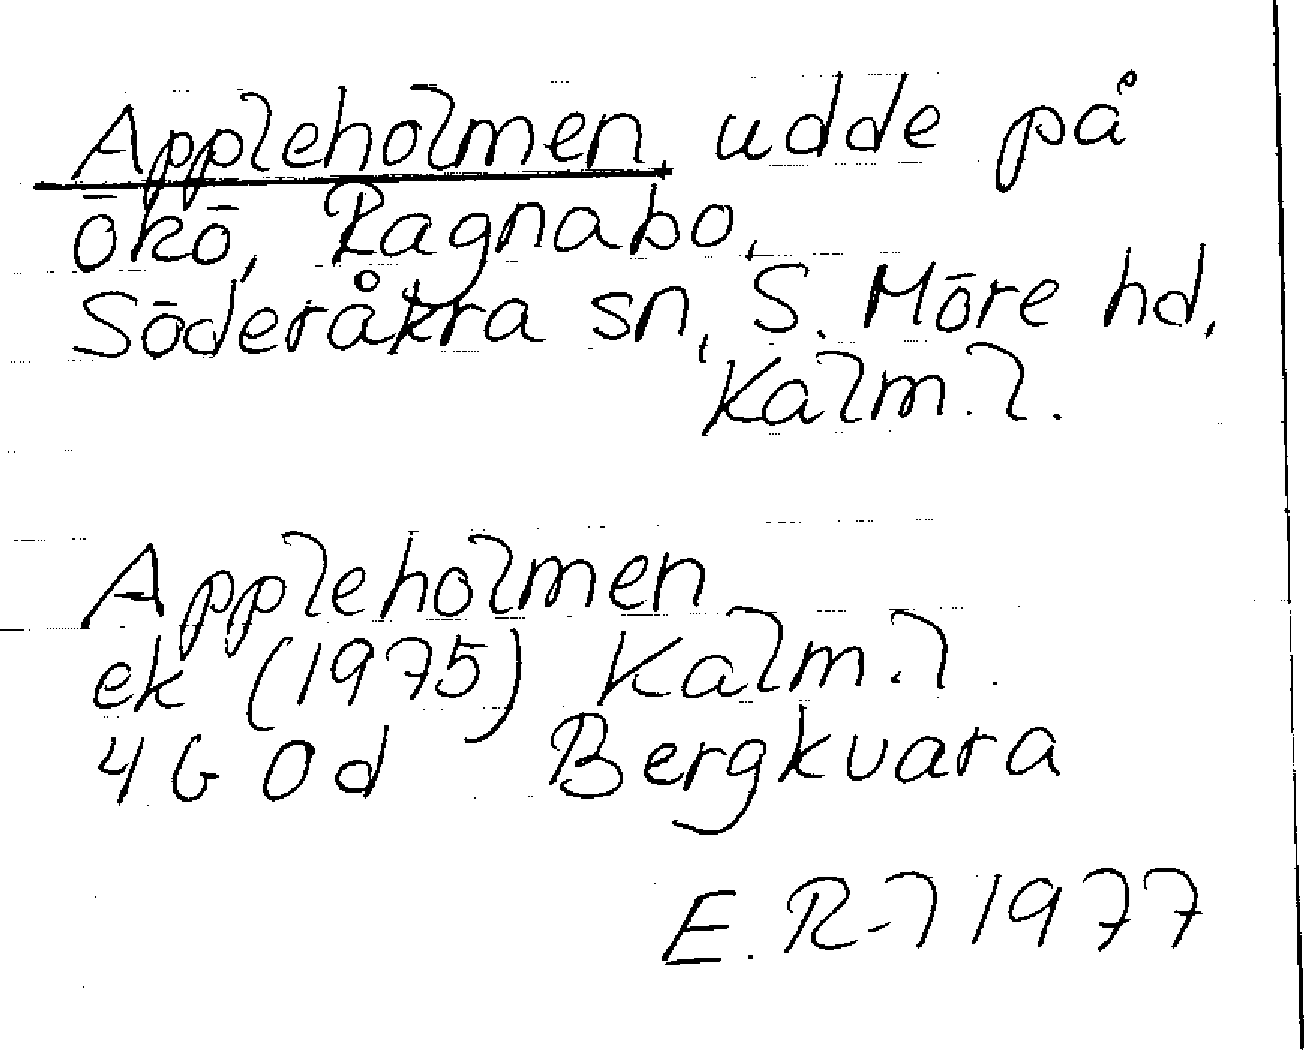 Appleholmen, udde på
Ökö, Ragnabo,
Söderåkra sn, S. Möre hd,
Kalm. l.
Appleholmen
ek (1975) Kalm. l.
4G 0d Bergkvara
E. R-l 1977